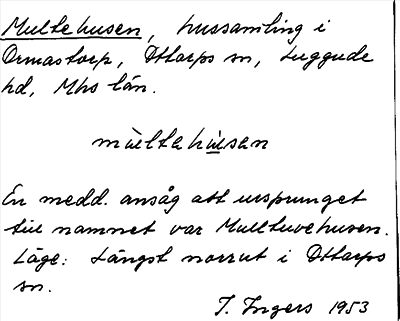 Multehusen, hussamling i
Ormastorp, Ottarps sn, Luggude
hd, Mhs län.
mùltehúsen
En medd. ansåg att ursprunget
till namnet var Mulltuvehusen.
Läge: Längst norrut i Ottarps
sn.
I. Ingers 1953